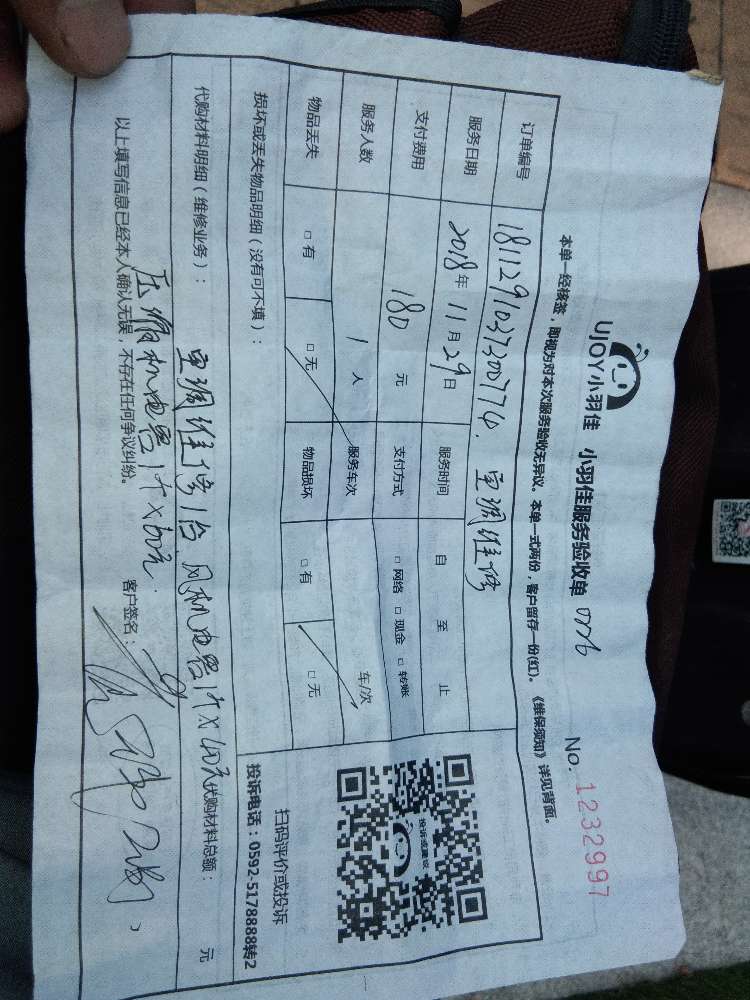 UJOY小羽佳 小羽佳服务验收单 No. 1232997
本单一经核签，即视为对本次服务验收无异议。本单一式两份，客户留存一份(红)。《维保须知》详见背面。
订单编号 空调维修
服务日期 2018年11月29日 服务时间 自 至 止
支付费用 180元 支付方式 □网络 □现金 □转账
服务人数 1人 服务车次 车/次
物品丢失 □有 □无 物品损坏 □有 □无
损坏或丢失物品明细（没有可不填）：
投诉或建议
扫码评价或投诉
投诉电话：0592-5178888转2
代购材料明细（维修业务）： 代购材料总额： 元
空调维修1台 风机电容1个×40元
压缩机电容1个×60元
以上填写信息已经本人确认无误，不存在任何争议纠纷。 客户签名：